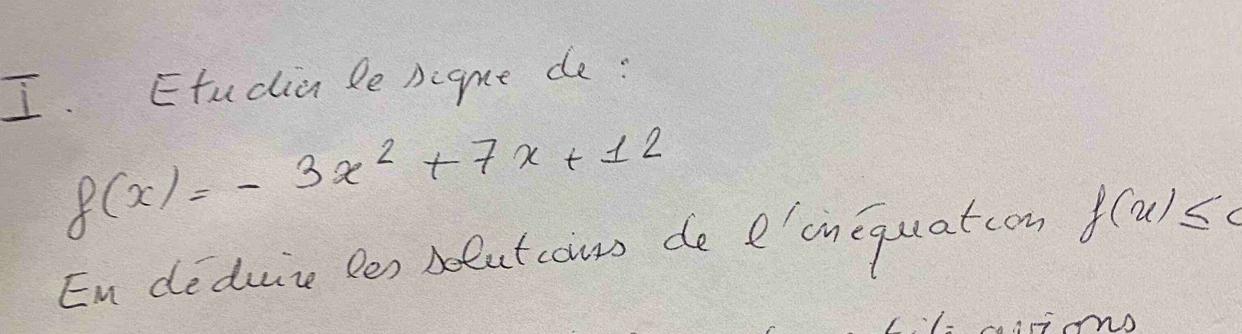 I. Etudier le signe de :
f(x) = - 3x² + 7x + 12
En déduire les solutions de l'inéquation f(x) ≤